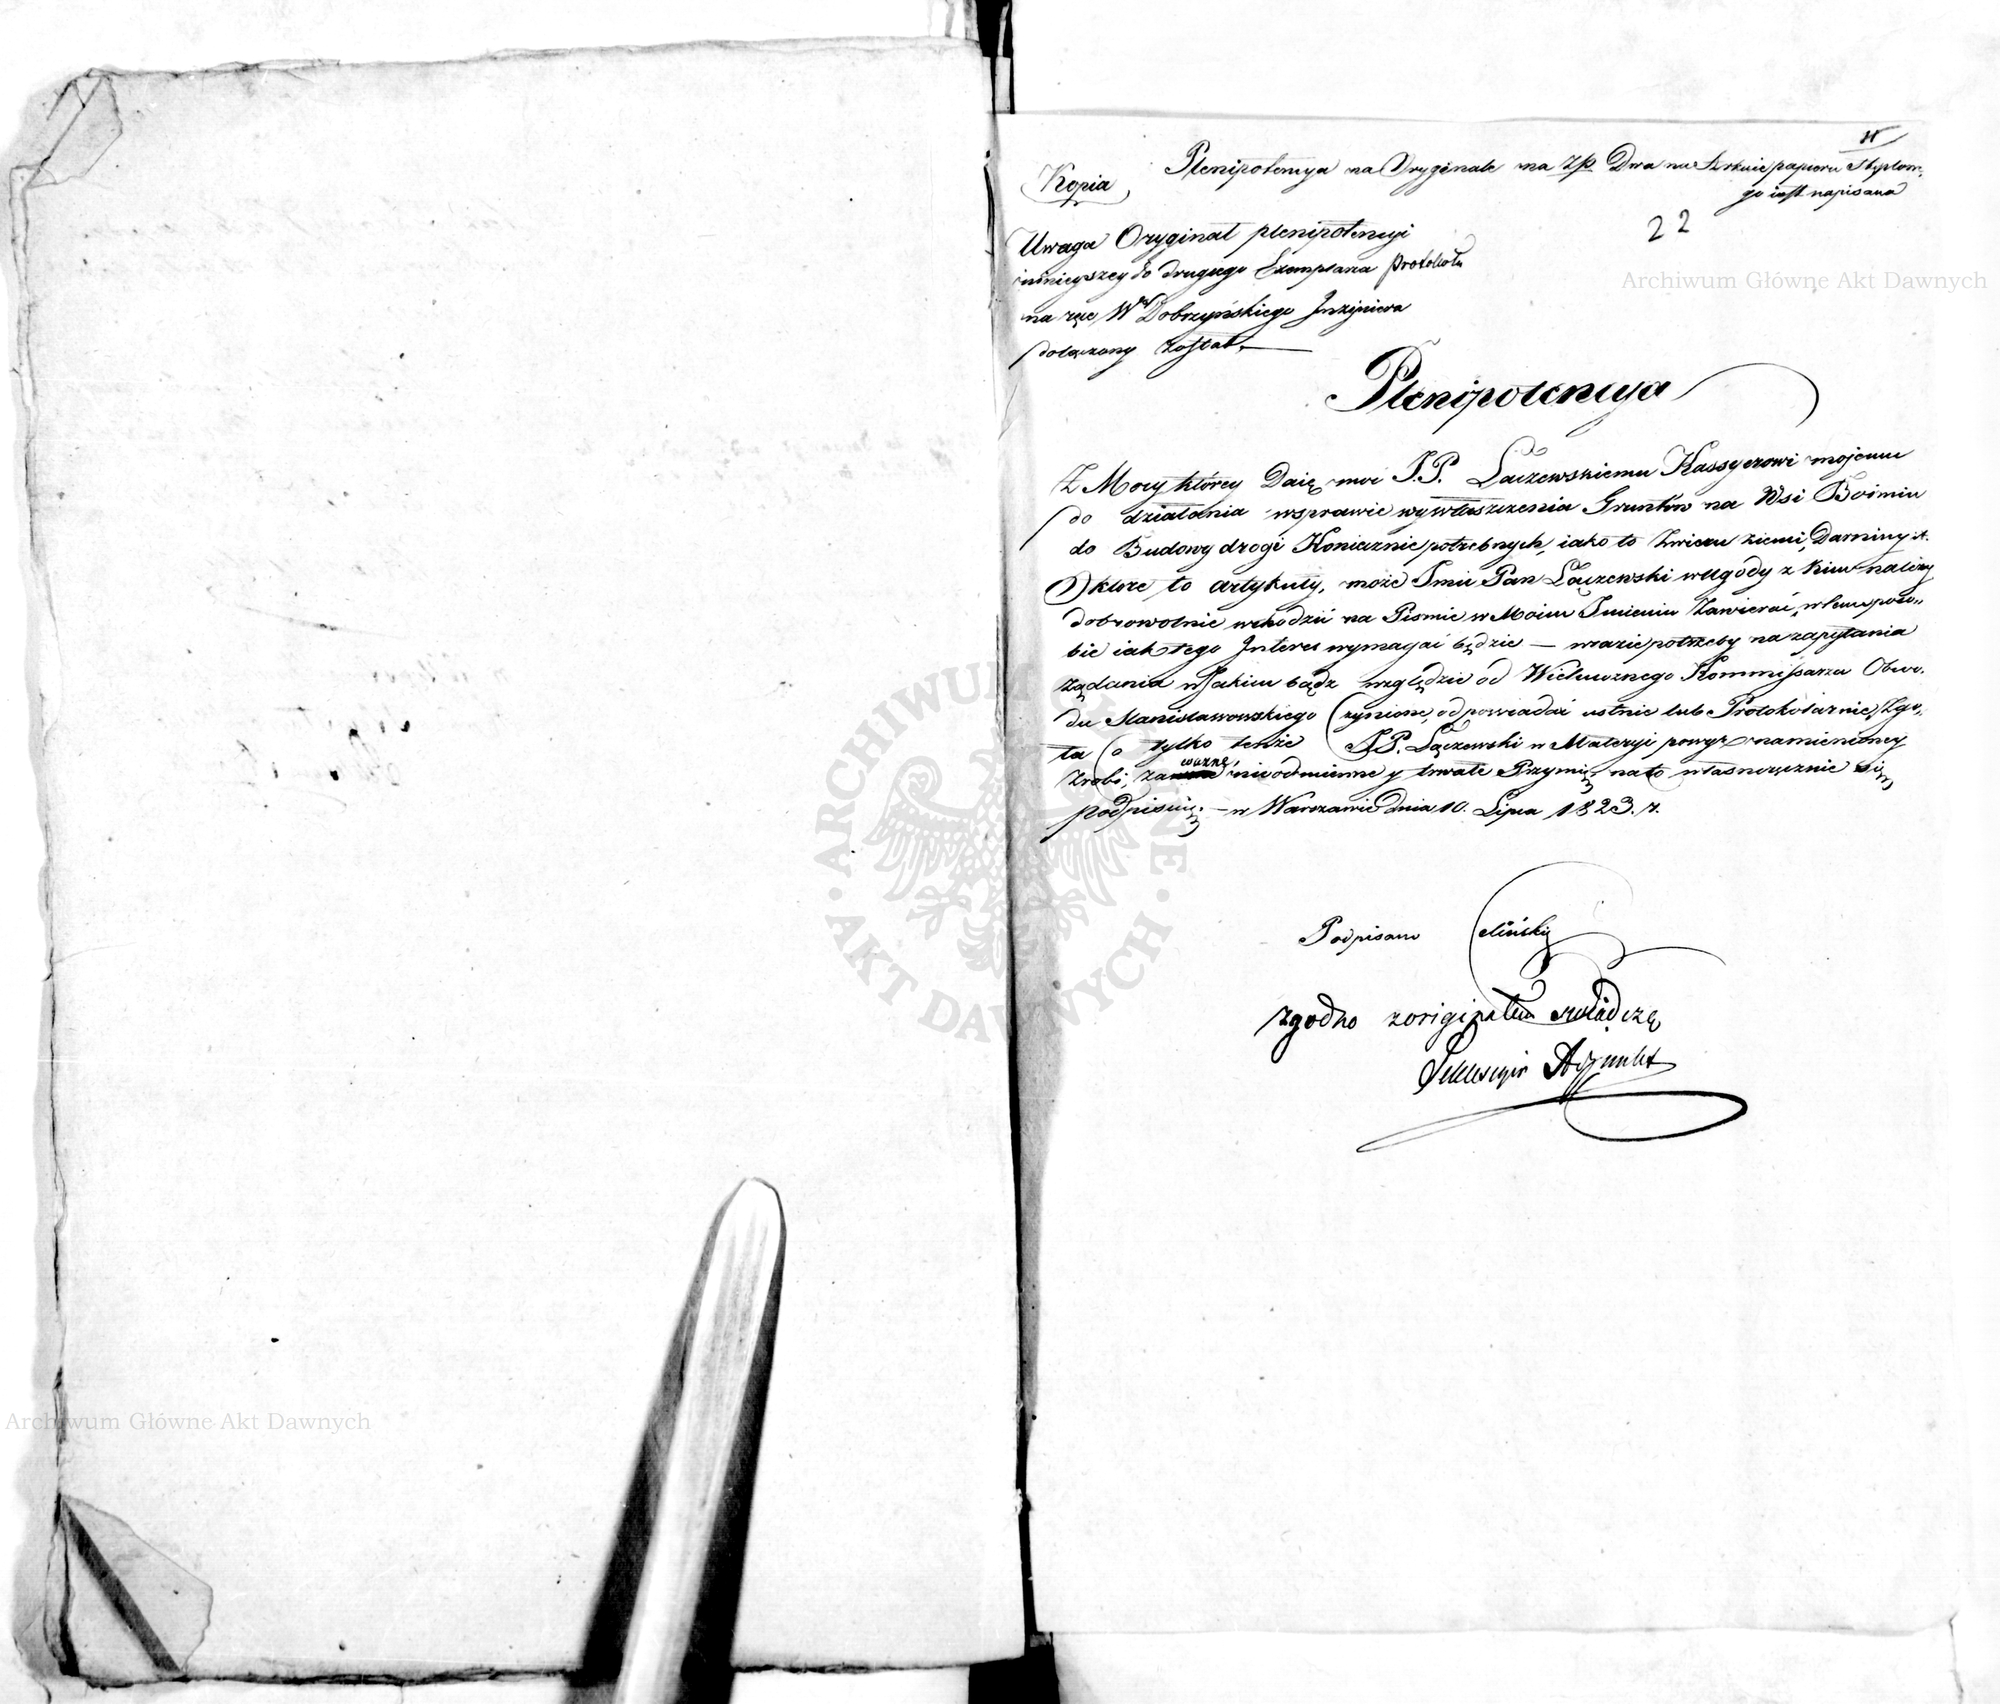 Kopia
Plenipotencya na Oryginale na złp. Dwa na Sztuce papieru Stęplowe,
go iest napisana
22
Uwaga Oryginał plenipotencyi
ninieyszey do drugiego Exemplarza Protokołu
na ręce Wgo Dobrzyńskiego Inżyniera
dołączony został.
Plenipotencya
Z Mocy którey Daię moc J.P. Łączewskiemu Kassyerowi mojemu
do działania w sprawie wywłaszczenia Gruntów na Wsi Boimiu
do Budowy drogi Koniecznie potrzebnych, iako to Żwiru ziemi, Darniny
O które to artykuły, może Jmć Pan Łączewski w Ugody z kim należy
dobrowolnie wchodzić na Piśmie w Moim Imieniu Zawierać, w tem sposo„
bie iak tego Interes wymagać będzie — w razie potrzeby na zapytania
żądania w Jakim bądz względzie od Wielmożnego Kommissarza Obwo„
du Stanisławowskiego Czynione, odpowiadać ustnie lub Protokólarnie, Zgo„
ła Co tylko tenże J.P. Łączewski w Materyi powyż namienioney
Zrobi, za ważne, nieodmienne y trwałe Przymię, na to własnoręcznie się
podpisuię. — w Warszawie dnia 10. Lipca 1823. r.
Podpisano Celiński
zgodno z originałem swiadczę
Adjunkt
Archiwum Główne Akt Dawnych
Archiwum Główne Akt Dawnych
ARCHIWUM GŁÓWNE · AKT DAWNYCH ·